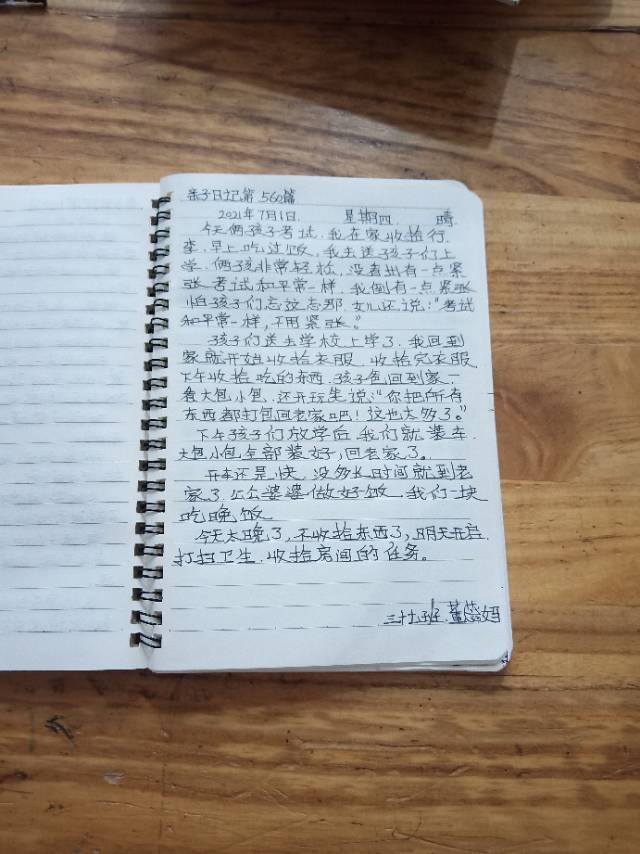 亲子日记第560篇
2021年7月1日 星期四 晴
今天俩孩子考试,我在家收拾行
李,早上吃过饭,我去送孩子们上
学,俩孩非常轻松,没看出有一点紧
张考试和平常一样,我倒有一点紧张
怕孩子们忘这忘那,女儿还说:“考试
和平常一样,不用紧张。”
孩子们送去学校上学了,我回到
家就开始收拾衣服,收拾完衣服
下午收拾吃的东西,孩子爸回到家一
看大包小包,还开玩笑说:“你把所有
东西都打包回老家吧!这也太多了。”
下午孩子们放学后,我们就装车
大包小包全部装好,回老家了。
开车还是快,没多长时间就到老
家了,公公婆婆做好饭,我们一块
吃晚饭
今天太晚了,不收拾东西了,明天开启
打扫卫生,收拾房间的任务。
三班 董 妈